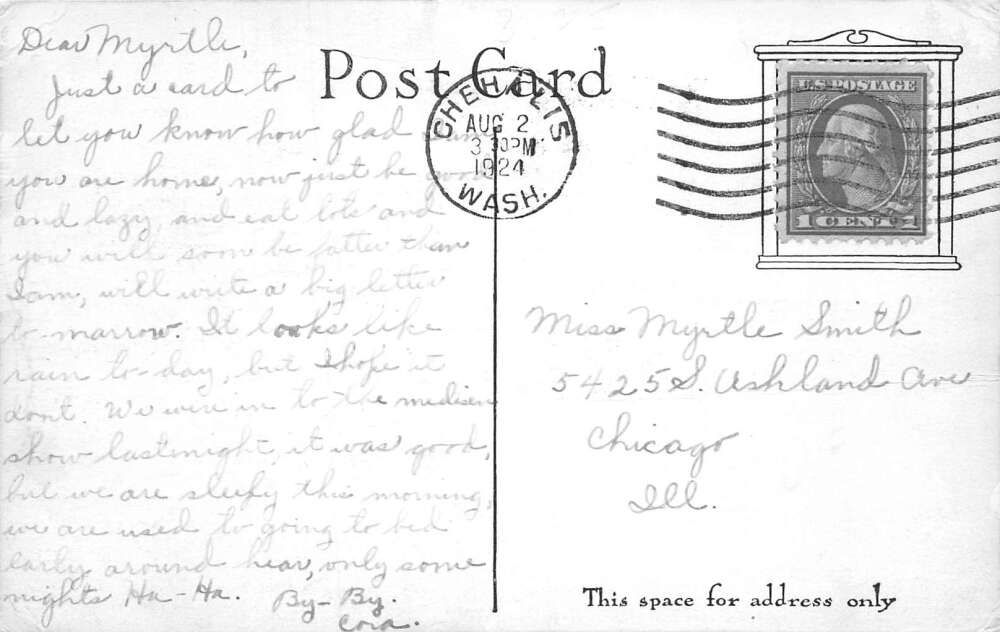 Dear Myrtle,
Just a card to
let you know how glad I am
you are home, now just be good
and lazy, and eat lots and
you will soon be fatter than
I am, will write a big letter
to-marrow. It looks like
rain to-day, but I hope it
dont. We were in to the medisen
show lastnight, it was good,
but we are sleepy this morning,
we are used to going to bed
early around hear, only some
nights Ha-Ha. By-By.
Cora.
Post Card
CHEHALIS
AUG 2
3 30PM
1924
WASH.
U.S. POSTAGE
1 CENT 1
Miss Myrtle Smith
5425 S. Ashland Ave
Chicago
Ill.
This space for address only